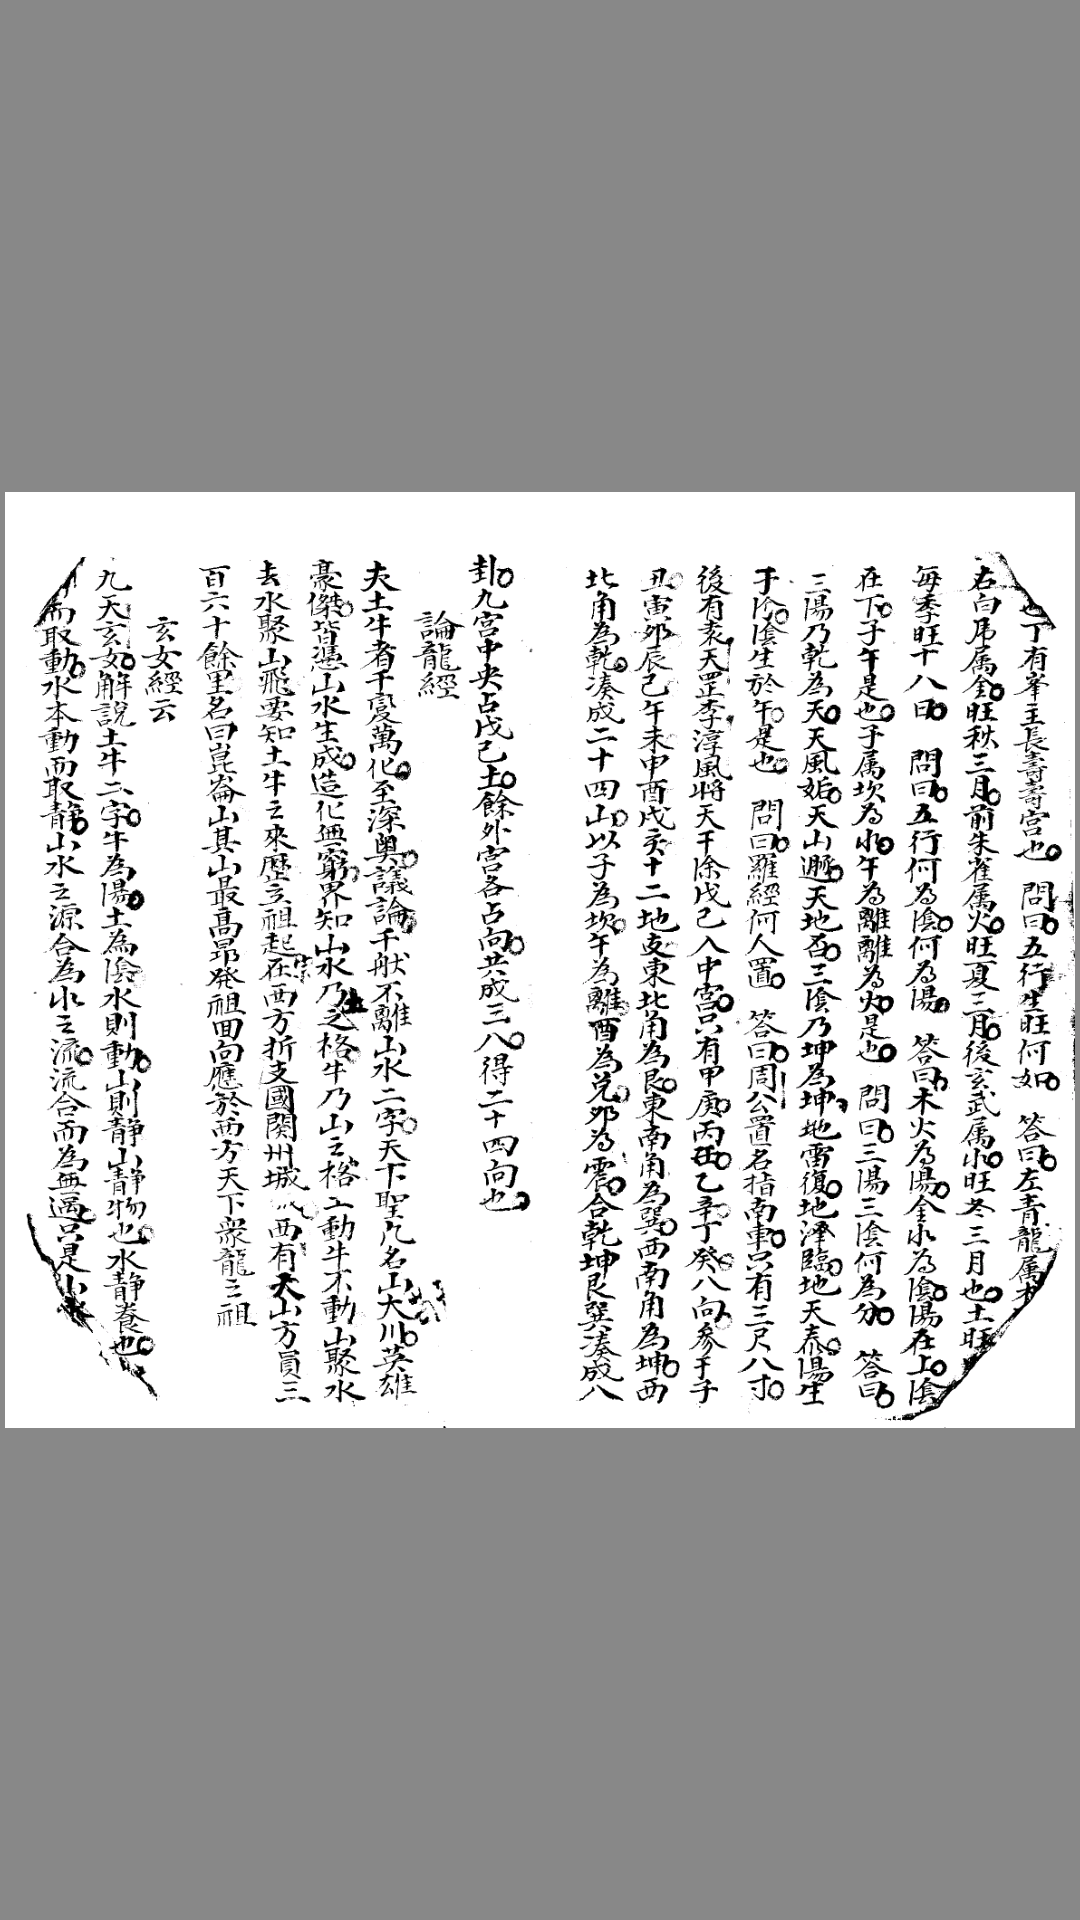 也丁有峯主長壽壽宫也○問曰○五行生旺何如○答曰○左青龍属木
右白帍属金○旺秋三月○前朱雀属火○旺夏三月○後玄武属水○旺冬三月也○土旺
每季旺十八日○問曰○五行何為陰○何為陽○答曰○木火為陽○金水為陰○陽在上○陰
在下○子午是也○子属坎為水○午為離離為火○是也○問曰○三陽三陰何為分○答曰○
三陽乃乾為天○天風姤○天山遯○天地否○三陰乃坤為坤○地雷復○地澤臨○地天泰○陽生
于○陰生於午○是也○問曰○羅經何人置○答曰○周公置名指南車○只有三尺八寸○
後有袁天罡李淳風将天干除戊己入中宮○只有甲庚丙壬○乙辛丁癸○八向○參于子
丑○寅夘辰己午未申酉戌亥○十二地支東北角為艮○東南角為巽○西南角為坤○西
北角為乾○湊成二十四山○以子為坎○午為離○酉為兌○夘為震○合乾坤艮巽湊成八
卦○九宮中央占戊己土○餘外宮各占向○共成三八○得二十四向也○
論龍經
夫土牛者千變萬化○至深奥○議論○千般不離山水二字○天下聖凡名山大川○英雄
豪傑○皆憑山水生成○造化無窮○界知山水乃之格○牛乃山之格土動牛不動山聚水
去水聚山飛要知土牛之來歷立祖起在西方折支國関州城西有大山方員三
百六十餘里名曰崑崙山其山最高昂発祖囬向應於西方天下衆龍之祖
玄女經云
九天玄女○解說土牛二字○牛為陽○土為陰水則動○山則静山静物也○水静養也○
而取動○水本動而取静○山水之源合為水之流○流合而為無過○只是山水